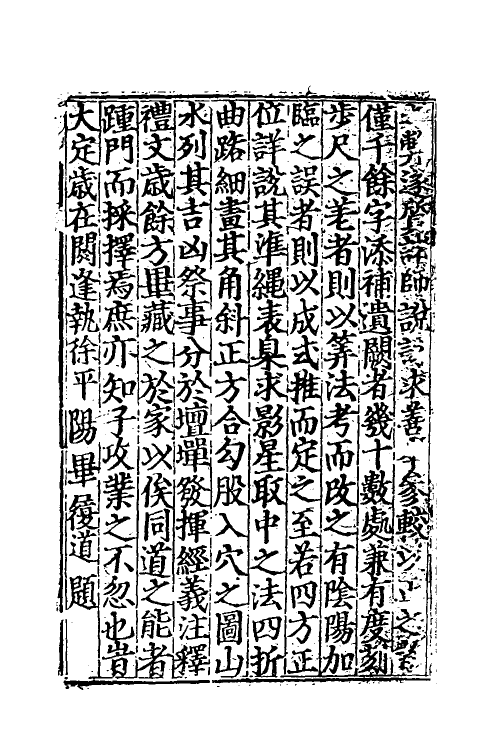 遂所謂師說訪求善參較之
僅千餘字添補遺闕者幾十數處兼有度刻
步尺之差者則以筭法考而改之有陰陽加
臨之誤者則以成式推而定之至若四方正
位詳說其準繩表臬求影星取中之法四折
曲路細畫其角斜正方合勾股入穴之圖山
水列其吉凶祭事分於壇墠發揮經義注釋
禮文歲餘方畢藏之於家以俟同道之能者
踵門而採擇焉庶亦知予攻業之不忽也旹
大定歲在閼逢執徐平陽畢履道題